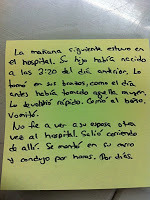 La mañana siguiente estuvo en
el hospital. Su hijo había nacido
a las 3:20 del día anterior. Lo
tomó en sus brazos, como el día
antes había tomado aquella mujer.
Lo devolvió rápido. Como el beso,
vomitó.
No fue a ver a su esposa otra
vez al hospital. Salió corriendo
de allí. Se montó en su carro
y condujo por horas. Por días.